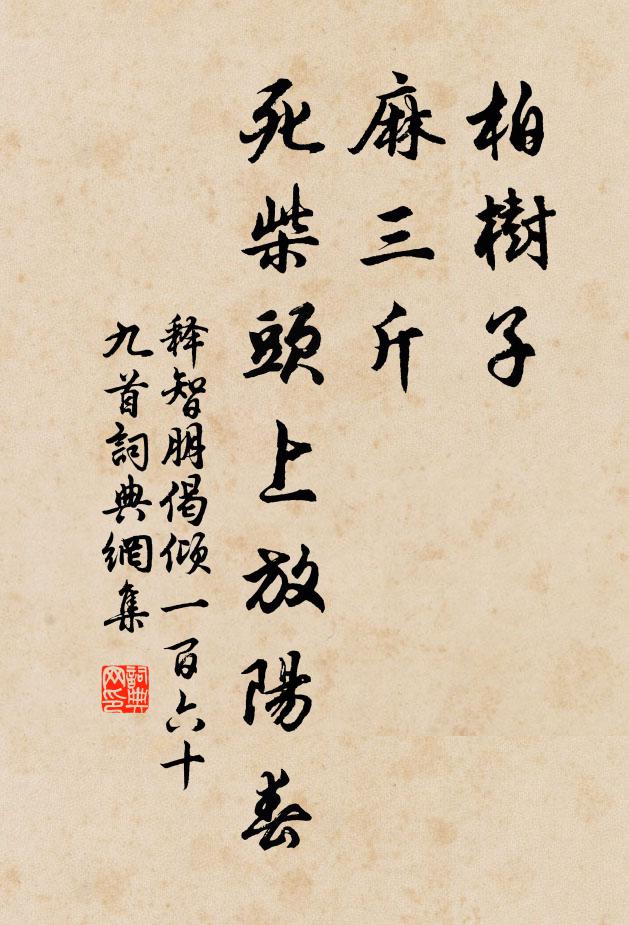 柏樹子
麻三斤
死柴頭上放陽春
释智朋偈倾一百六十
九首詞典網集
詞典网印